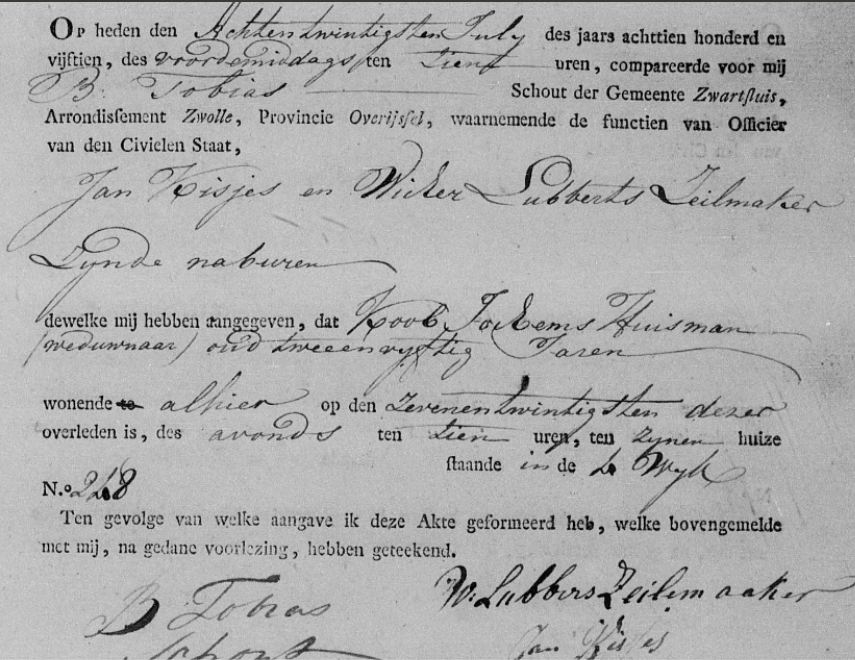 Op heden den Achtentwintigsten July des jaars achttien honderd en
vijftien, des voordemiddags ten tien uren, compareerde voor mij
B. Tobias Schout der Gemeente Zwartsluis,
Arrondissement Zwolle, Provincie Overijssel, waarnemende de functien van Officier
van den Civielen Staat,
Jan Kisjes en Wicher Lubberts Zeilmaker
Zynde naburen
dewelke mij hebben aangegeven, dat Koob Jochems Huisman
(weduwnaar) oud tweeenvyftig Jaren
wonende te alhier op den zevenentwintigsten dezer
overleden is, des avonds ten tien uren, ten zynen huize
staande in de 4 Wyk
N.o 248
Ten gevolge van welke aangave ik deze Akte geformeerd heb, welke bovengemelde
met mij, na gedane voorlezing, hebben geteekend.
B Tobias W: Lubbers Zeilemaaker
Schout Jan Kisjes